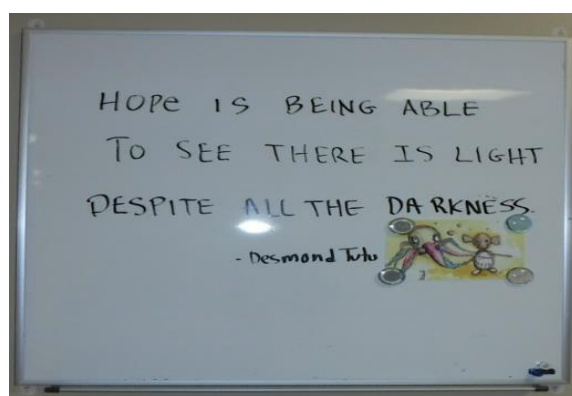 HOPe IS BEING ABLE
TO SEE THERE IS LIGHT
DESPITE ALL THE DARKNESS.
- Desmond Tutu